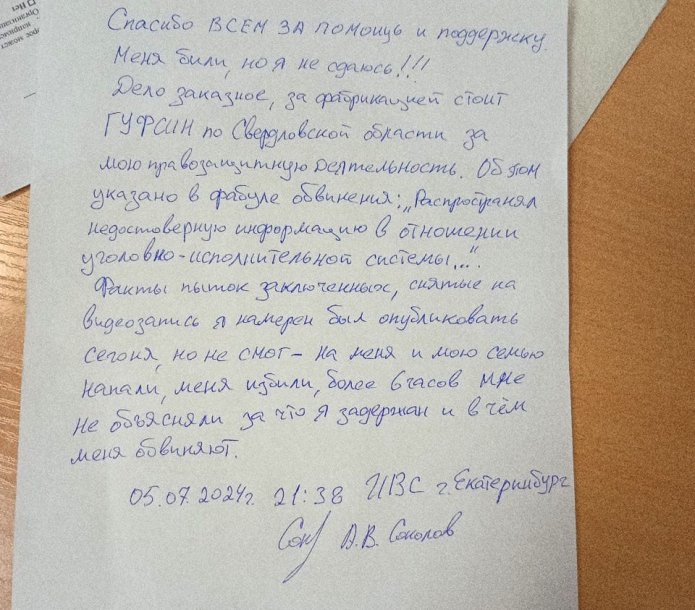 Спасибо ВСЕМ ЗА ПОМОЩЬ и поддержку.
Меня били, но я не сдаюсь!!!
Дело заказное, за фабрикацией стоит
ГУФСИН по Свердловской области за
мою правозащитную деятельность. Об этом
указано в фабуле обвинения: „Распространял
недостоверную информацию в отношении
уголовно-исполнительной системы...".
Факты пыток заключенных, снятые на
видеозапись я намерен был опубликовать
сегоня, но не смог – на меня и мою семью
напали, меня избили, более 6 часов мне
не объясняли за что я задержан и в чём
меня обвиняют.
05.07.2024г. 21:38 ИВС г. Екатеринбург
А.В. Соколов